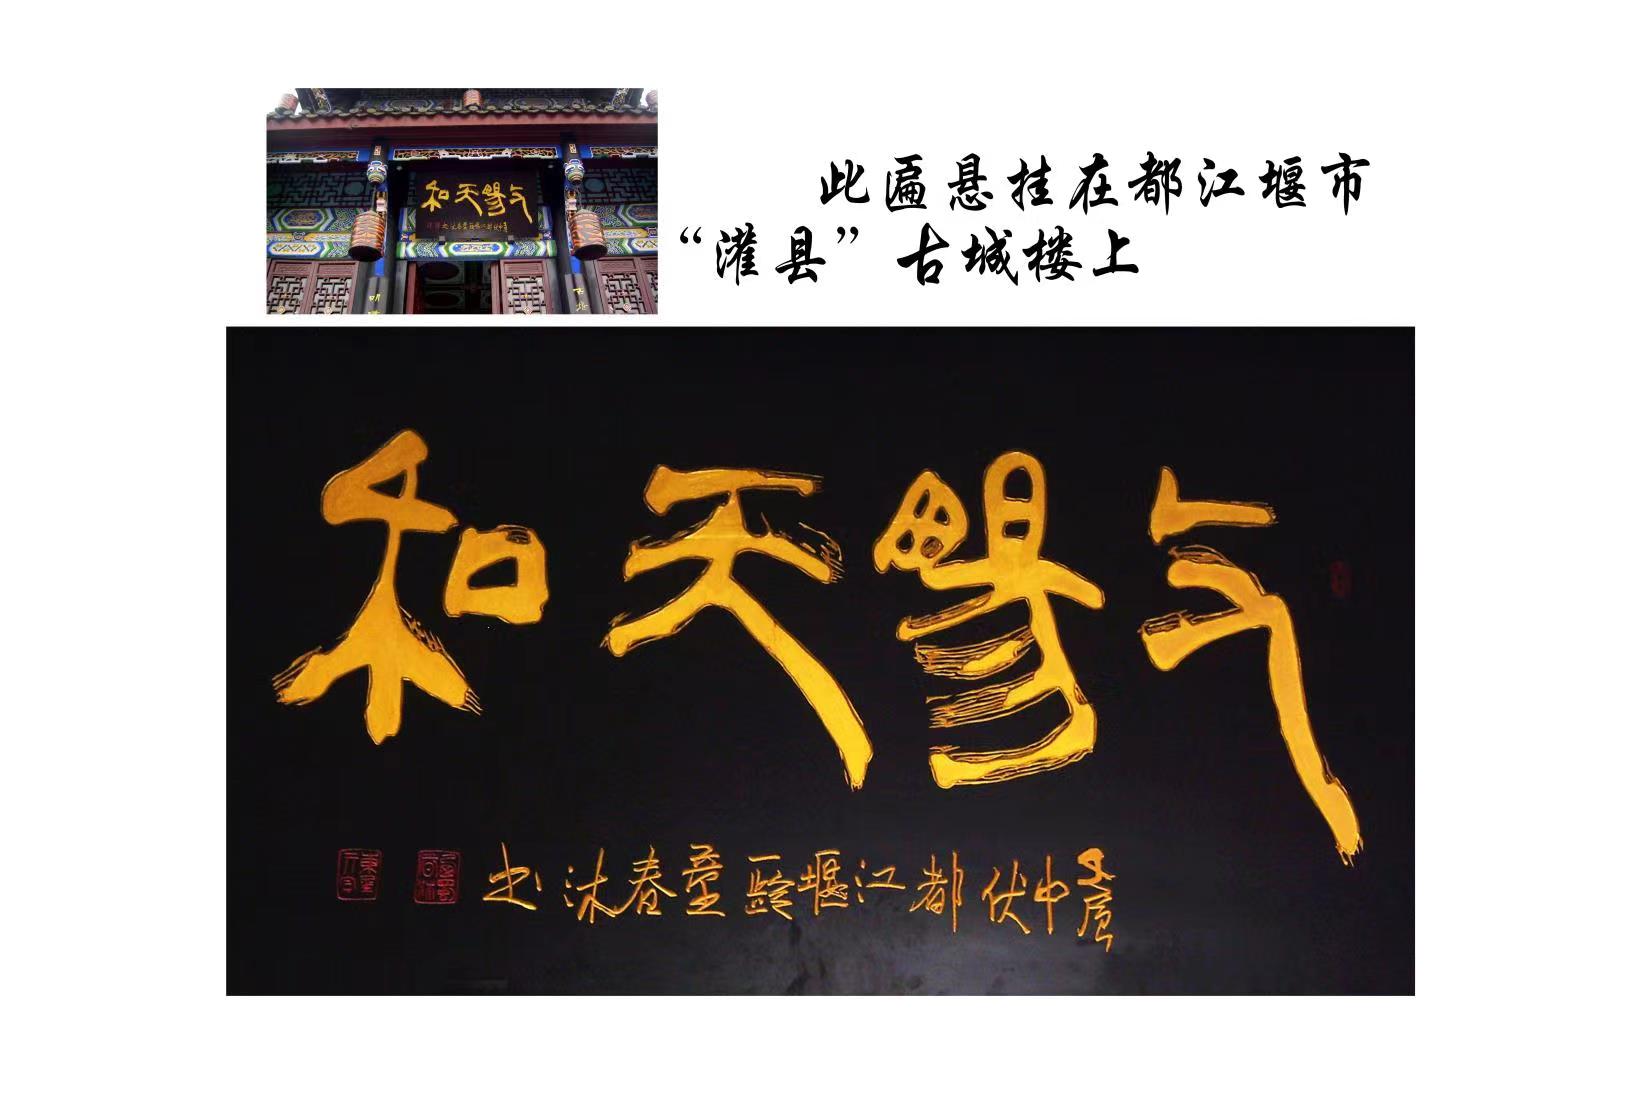 此匾悬挂在都江堰市
“灌县”古城楼上
气暢天和
辰中伏都江堰春沐书